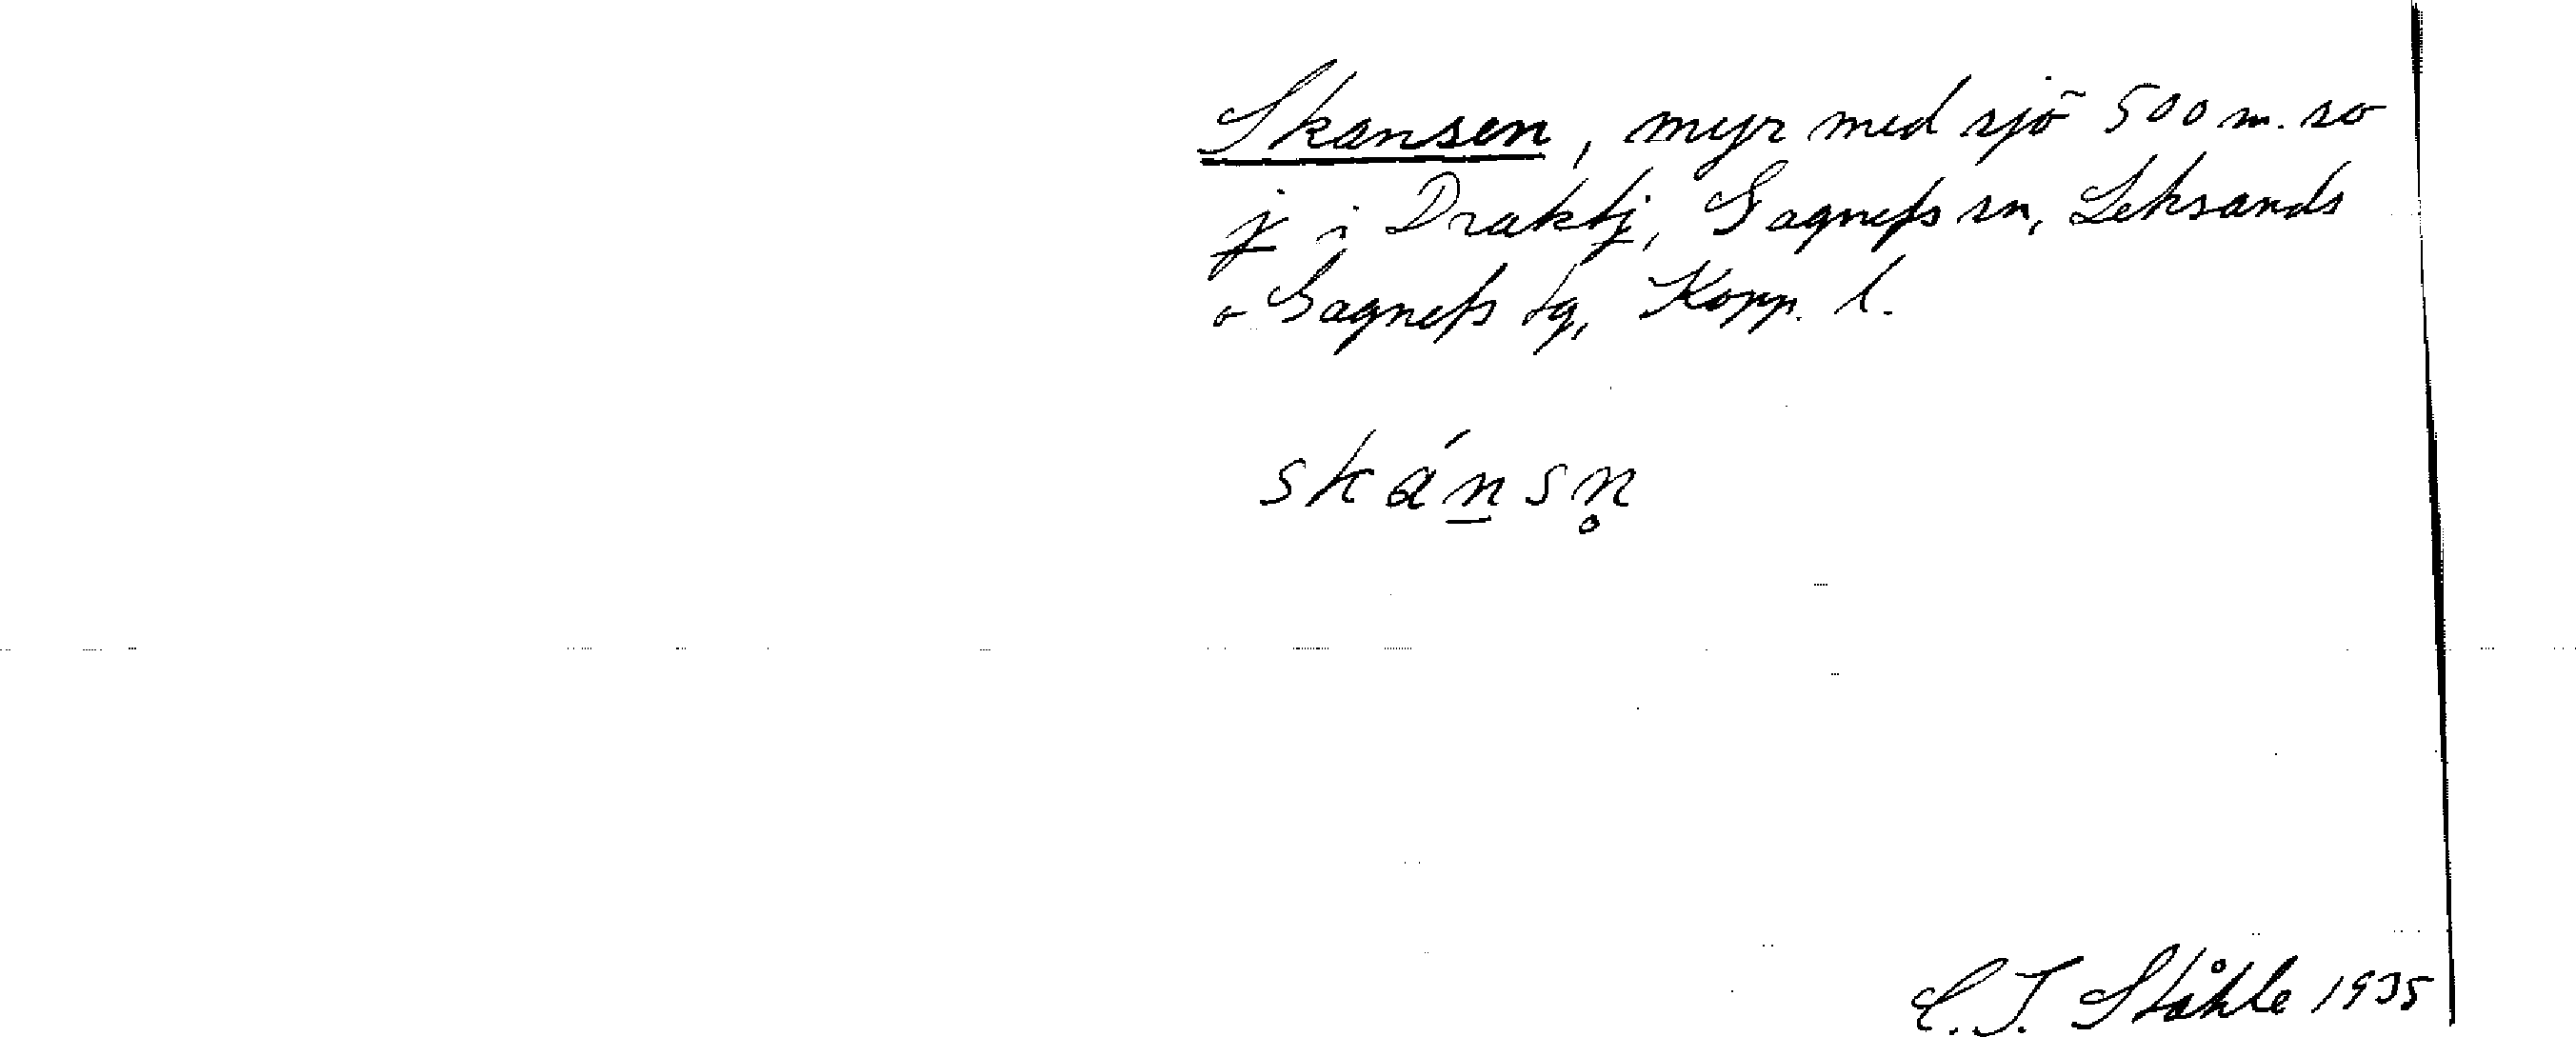 Skansen, myr med sjö 500 m. so
j i Draktj, Gagnefs sn, Leksands
o Gagnefs tg, Kopp. l.
skánsn̥
C. I. Ståhle 1935